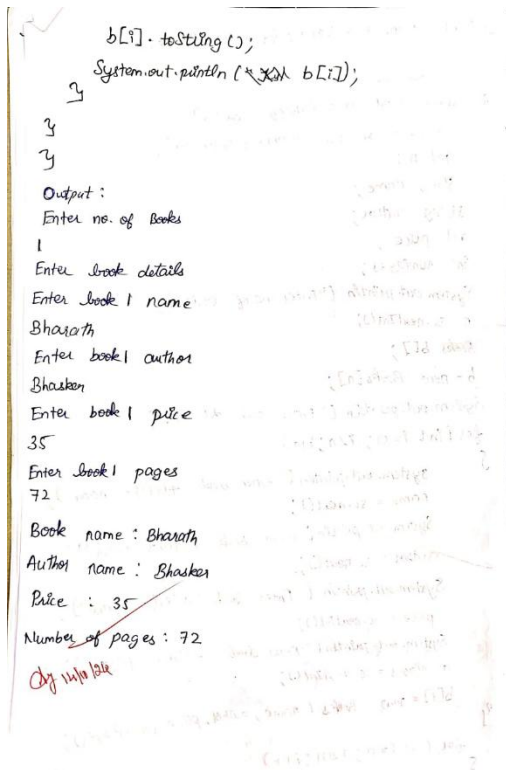 b[i].toString();
System.out.println( b[i]);
}
}
}
Output :
Enter no. of Books
1
Enter book details
Enter book 1 name
Bharath
Enter book1 author
Bhasker
Enter book 1 price
35
Enter book1 pages
72
Book name : Bharath
Author name : Bhasker
Price : 35
Number of pages : 72